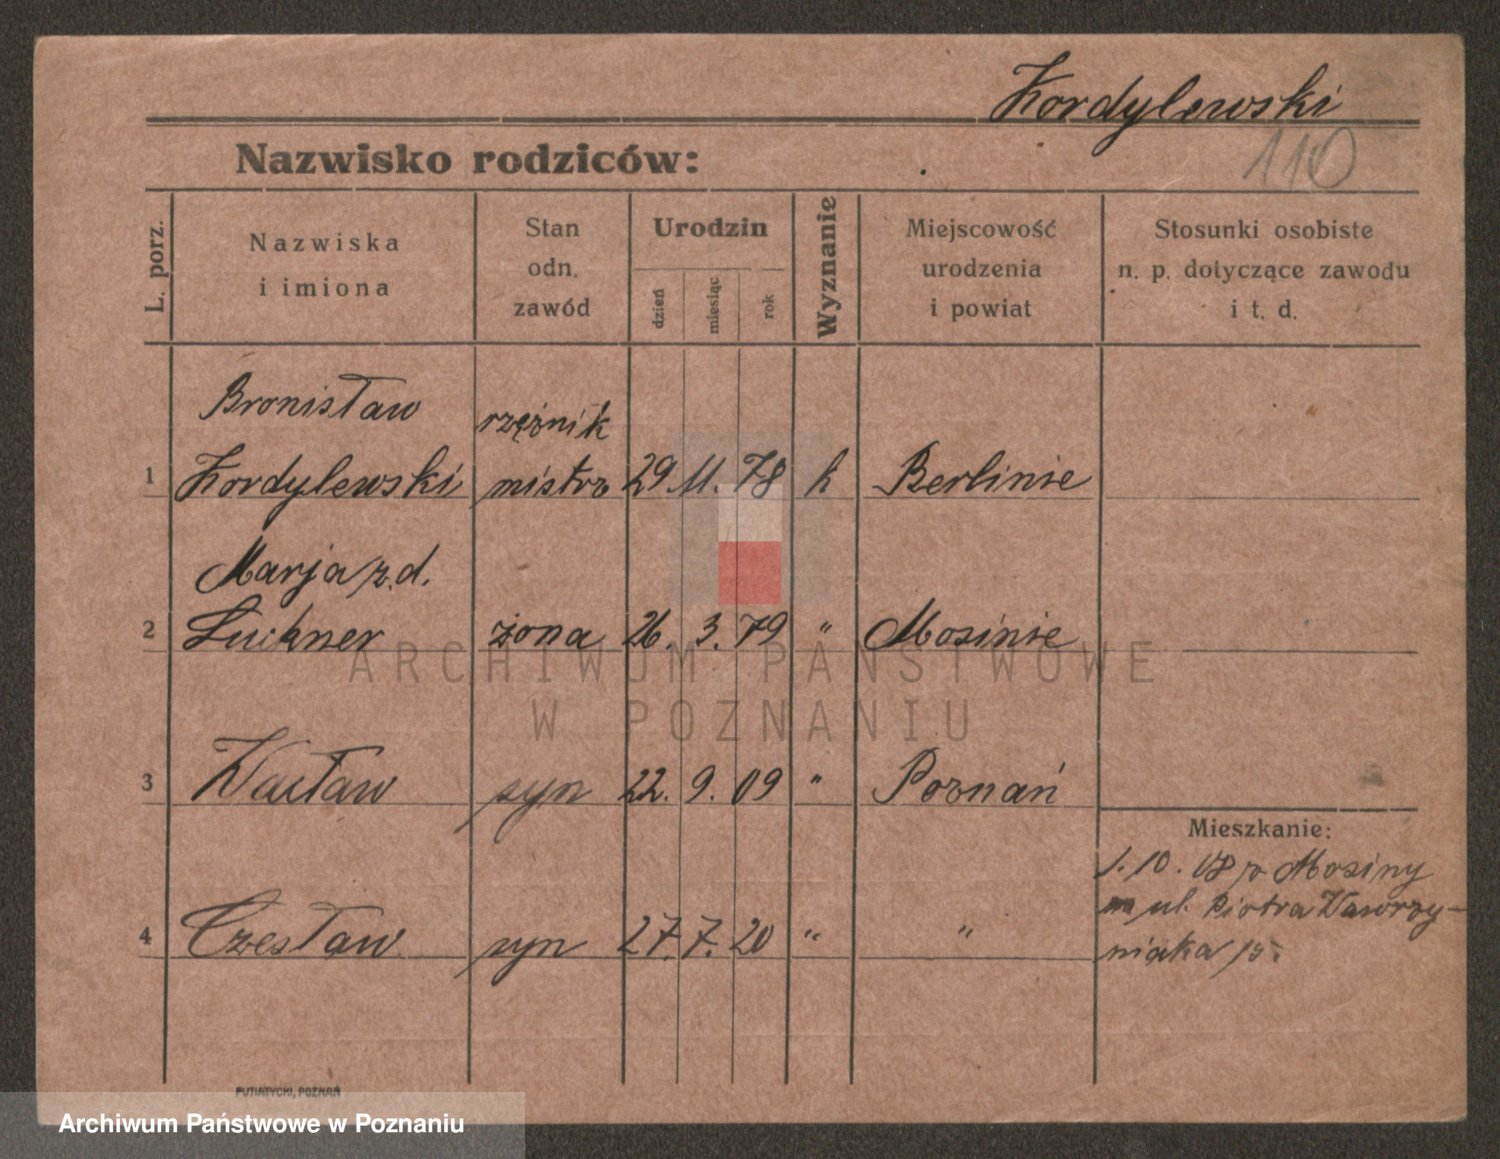 Kordylewski
110
Nazwisko rodziców:
L. porz.
Nazwiska
i imiona
Stan
odn.
zawód
Urodzin
dzień
miesiąc
rok
Wyznanie
Miejscowość
urodzenia
i powiat
Stosunki osobiste
n. p. dotyczące zawodu
i t. d.
Bronisław rzeźnik
1 Kordylewski mistrz 29 11. 78 k Berlinie
Marja z.d.
2 Luchner żona 26. 3. 79 " Mosinie
ARCHIWUM PAŃSTWOWE
W POZNANIU
3 Wacław syn 22. 9. 09 " Poznań
Mieszkanie:
1. 10. 08 z Mosiny
ul. Piotra Wawrzy-
4 Czesław syn 27. 7. 20 " "
niaka
PUTIATYCKI, POZNAŃ
Archiwum Państwowe w Poznaniu